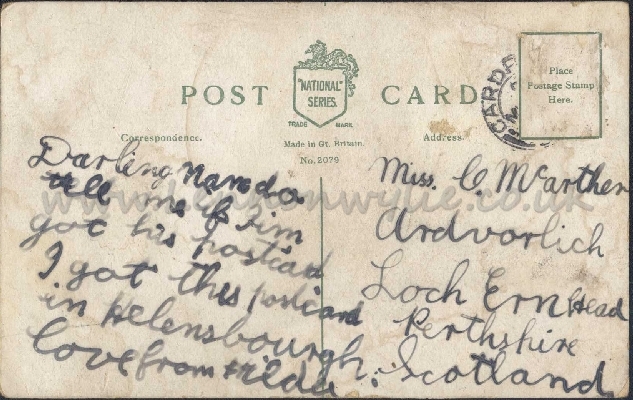 POST CARD
"NATIONAL"
SERIES.
TRADE MARK.
Correspondence.
Made in Gt. Britain.
No. 2079
Address.
Place
Postage Stamp
Here.
CARD
Darling Nanda
tell me if Jim
got his postcad
I got this postcard
in Helensbourgh.
love from Hilda
Miss. C. McArther
Ardvorlich
Loch Ern Head
Perthshire
Scotland